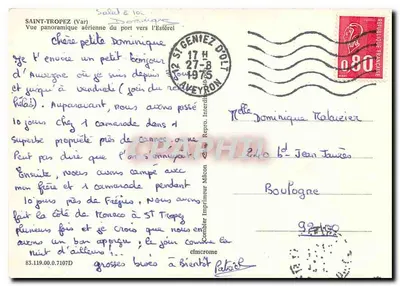 SAINT-TROPEZ (Var)
Vue panoramique aérienne du port vers l'Estérel
Chère petite Dominique
Je t'envoie un petit bonjour
d'Auvergne où je suis depuis jours
et jusqu'à vendredi (jour du
). Auparavant, nous avons passé
10 jours chez 1 camarade dans 1
superbe propriété près de Cannes, on ne
peut pas dire que l'on s'ennuyait.
Ensuite, nous avons campé avec
mon frère et 1 camarade pendant
10 jours près de Fréjus. Nous avons
fait la côte de Monaco à St Tropez
plusieurs fois et je crois que nous en
avons un bon aperçu, le jour comme la
nuit d'ailleurs !...
grosses bises à Bientôt Patrick
85.119.00.0.7107D
Combier Imprimeur Mâcon
Repro. Interdite
cimcrome
12 ST GENIEZ D'OLT
17 H
27-8
1975
AVEYRON
0,80
Melle Dominique
bd Jean Jaurès
Boulogne